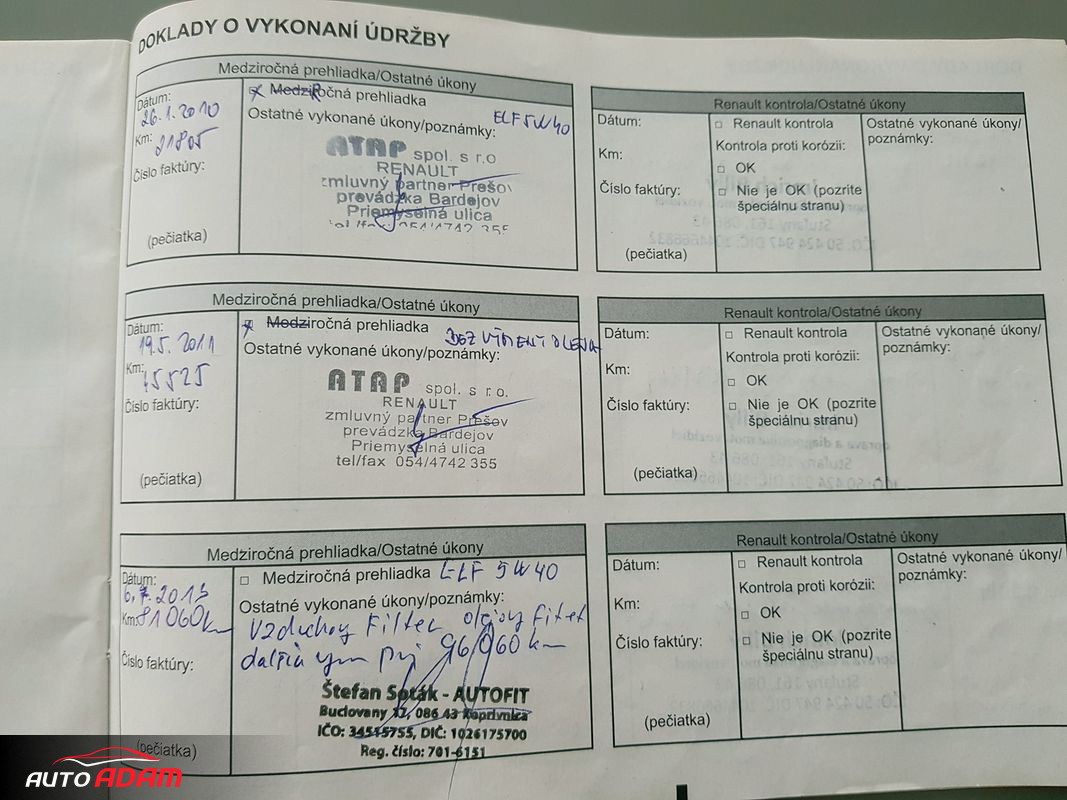 DOKLADY O VYKONANÍ ÚDRŽBY
Medziročná prehliadka/Ostatné úkony
Dátum:
26.1.2010
Km:
21805
Číslo faktúry:
(pečiatka)
Medziročná prehliadka
Ostatné vykonané úkony/poznámky:
ELF 5W40
ATAP spol. s r.o
RENAULT
zmluvný partner Prešov
prevádzka Bardejov
Priemyselná ulica
tel/fax 054/4742 355
Renault kontrola/Ostatné úkony
Dátum:
Km:
Číslo faktúry:
(pečiatka)
Renault kontrola
Kontrola proti korózii:
OK
Nie je OK (pozrite
špeciálnu stranu)
Ostatné vykonané úkony/
poznámky:
Medziročná prehliadka/Ostatné úkony
Dátum:
19.5.2011
Km:
45525
Číslo faktúry:
(pečiatka)
Medziročná prehliadka
BEZ VÝMENY OLEJA
Ostatné vykonané úkony/poznámky:
ATAP spol. s r.o.
RENAULT
zmluvný partner Prešov
prevádzka Bardejov
Priemyselná ulica
tel/fax 054/4742 355
Renault kontrola/Ostatné úkony
Dátum:
Km:
Číslo faktúry:
(pečiatka)
Renault kontrola
Kontrola proti korózii:
OK
Nie je OK (pozrite
špeciálnu stranu)
Ostatné vykonané úkony/
poznámky:
Medziročná prehliadka/Ostatné úkony
Dátum:
6.7.2013
Km: 81060km
Číslo faktúry:
(pečiatka)
Medziročná prehliadka ELF 5W40
Ostatné vykonané úkony/poznámky:
Vzduchovy Filter olejovy Filter
dalšia vym pri 96060 km
Štefan Soták - AUTOFIT
Buclovany 12, 086 43 Koprivnica
IČO: 34515755, DIČ: 1026175700
Reg. číslo: 701-6151
Renault kontrola/Ostatné úkony
Dátum:
Km:
Číslo faktúry:
(pečiatka)
Renault kontrola
Kontrola proti korózii:
OK
Nie je OK (pozrite
špeciálnu stranu)
Ostatné vykonané úkony/
poznámky:
AUTO ADAM